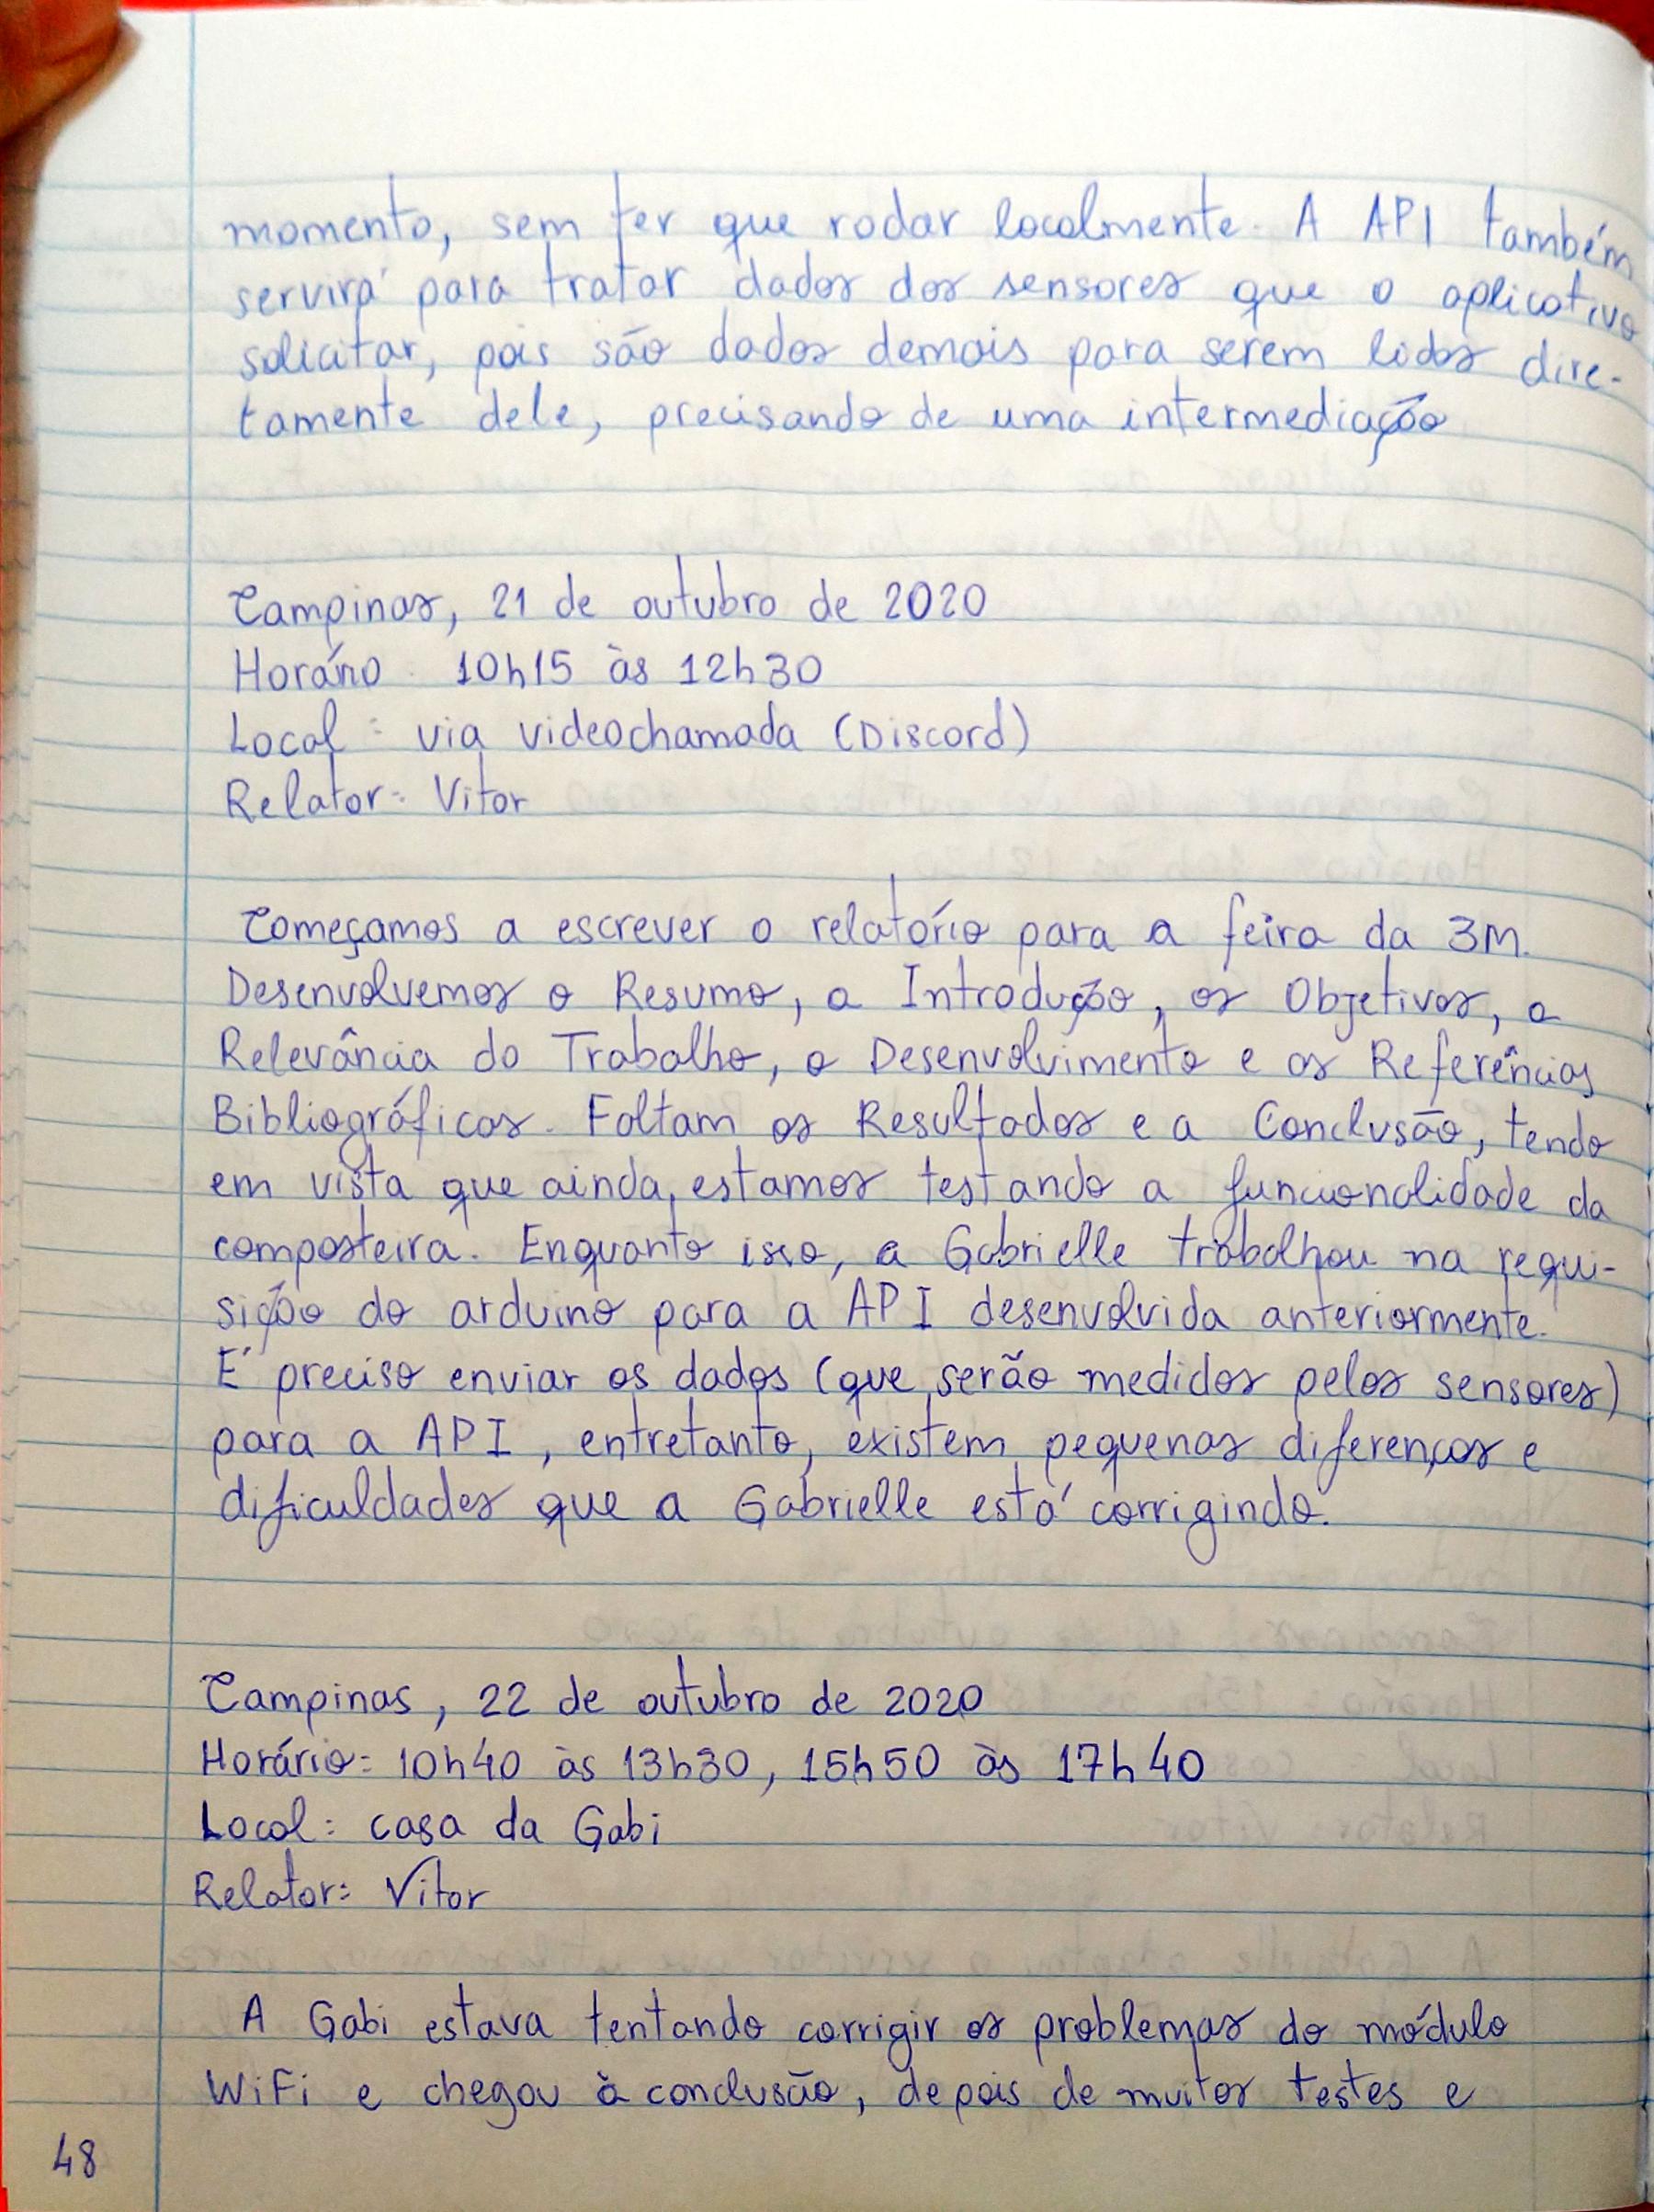 momento, sem ter que rodar localmente. A API também
servirá para tratar dados dos sensores que o aplicativo
solicitar, pois são dados demais para serem lidos dire-
tamente dele, precisando de uma intermediação
Campinas, 21 de outubro de 2020
Horário: 10h15 às 12h30
Local: via videochamada (Discord)
Relator: Vitor
Começamos a escrever o relatório para a feira da 3M.
Desenvolvemos o Resumo, a Introdução, os Objetivos, a
Relevância do Trabalho, o Desenvolvimento e as Referências
Bibliográficas. Faltam os Resultados e a Conclusão, tendo
em vista que ainda estamos testando a funcionalidade da
composteira. Enquanto isso, a Gabrielle trabalhou na requi-
sição do arduino para a API desenvolvida anteriormente.
É preciso enviar os dados (que serão medidos pelos sensores)
para a API, entretanto, existem pequenas diferenças e
dificuldades que a Gabrielle está corrigindo.
Campinas, 22 de outubro de 2020
Horário: 10h40 às 13h30, 15h50 às 17h40
Local: casa da Gabi
Relator: Vitor
A Gabi estava tentando corrigir os problemas do módulo
WiFi e chegou à conclusão, depois de muitos testes e
48